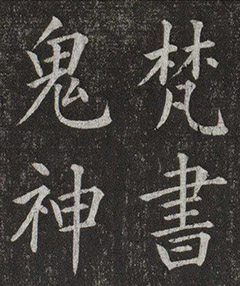 梵書
鬼神